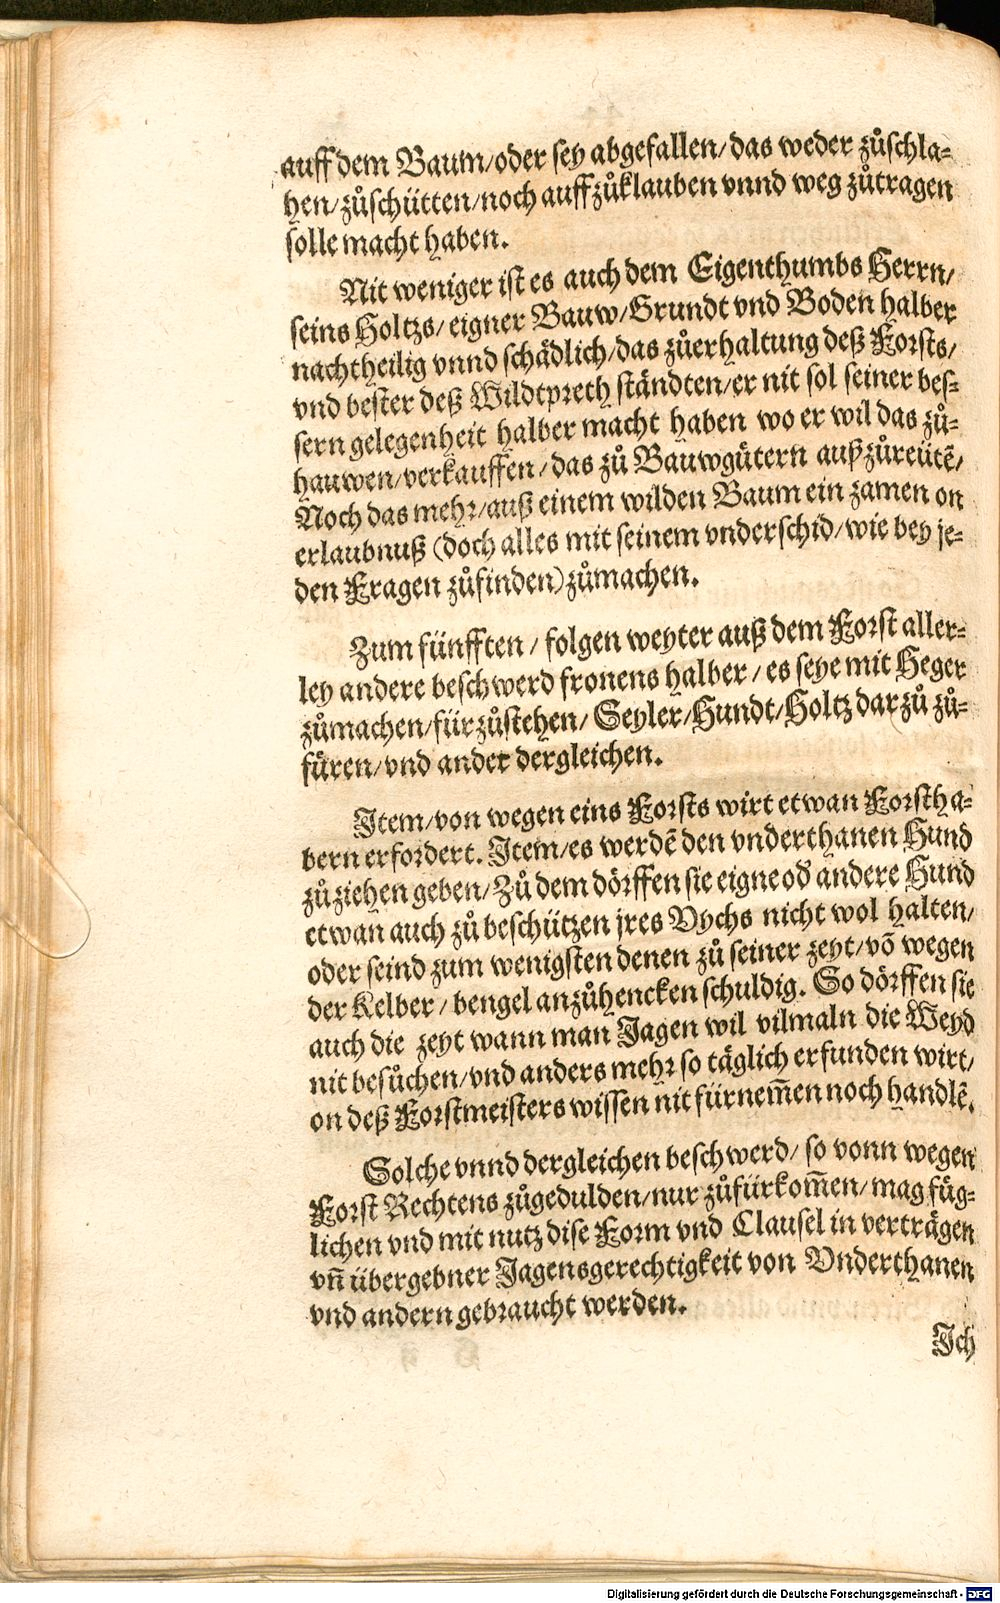 auff dem Baum/oder sey abgefallen/das weder zůschla-
hen/zůschütten/noch auffzůklauben vnnd weg zůtragen
solle macht haben.
Nit weniger ist es auch dem Eigenthumbs Herrn/
seins Holtzs/eigner Bauw/Grundt vnd Boden halber
nachtheilig vnnd schädlich/das zůerhaltung deß Forsts/
vnd bester deß Wildtpreth ständten/er nit sol seiner bes-
sern gelegenheit halber macht haben wo er wil das zů-
hauwen/verkauffen/das zů Bauwgütern außzůreütẽ/
Noch das mehr/auß einem wilden Baum ein zamen on
erlaubnuß (doch alles mit seinem vnderschid/wie bey je-
den Fragen zůfinden) zůmachen.
Zum fünfften/folgen weyter auß dem Forst aller-
ley andere beschwerd fronens halber/es seye mit Heger
zůmachen/fürzůstehen/Seyler/Hundt/Holtz darzů zů-
füren/vnd ander dergleichen.
Item/von wegen eins Forsts wirt etwan Forstha-
bern erfordert. Item/es werdẽ den vnderthanen Hund
zůziehen geben/Zů dem dörffen sie eigne od̕ andere Hund
etwan auch zů beschützen jres Vychs nicht wol halten/
oder seind zum wenigsten denen zů seiner zeyt/võ wegen
der Kelber/bengel anzůhencken schuldig. So dörffen sie
auch die zeyt wann man Jagen wil vilmaln die Weyd
nit besůchen/vnd anders mehr so täglich erfunden wirt/
on deß Forstmeisters wissen nit fürnem̃en noch handlẽ.
Solche vnnd dergleichen beschwerd/so vonn wegen
Forst Rechtens zůgedulden/nur zůfürkom̃en/mag füg-
lichen vnd mit nutz dise Form vnd Clausel in verträgen
vñ übergebner Jagensgerechtigkeit von Vnderthanen
vnd andern gebraucht werden.
Ich
Digitalisierung gefördert durch die Deutsche Forschungsgemeinschaft - DFG